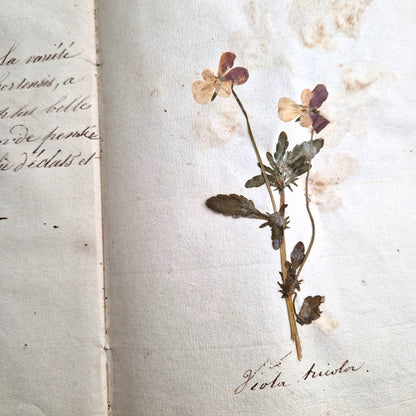 La variété
hortensis, a
plus belle
de pensée
d'éclats et
Viola tricolor.